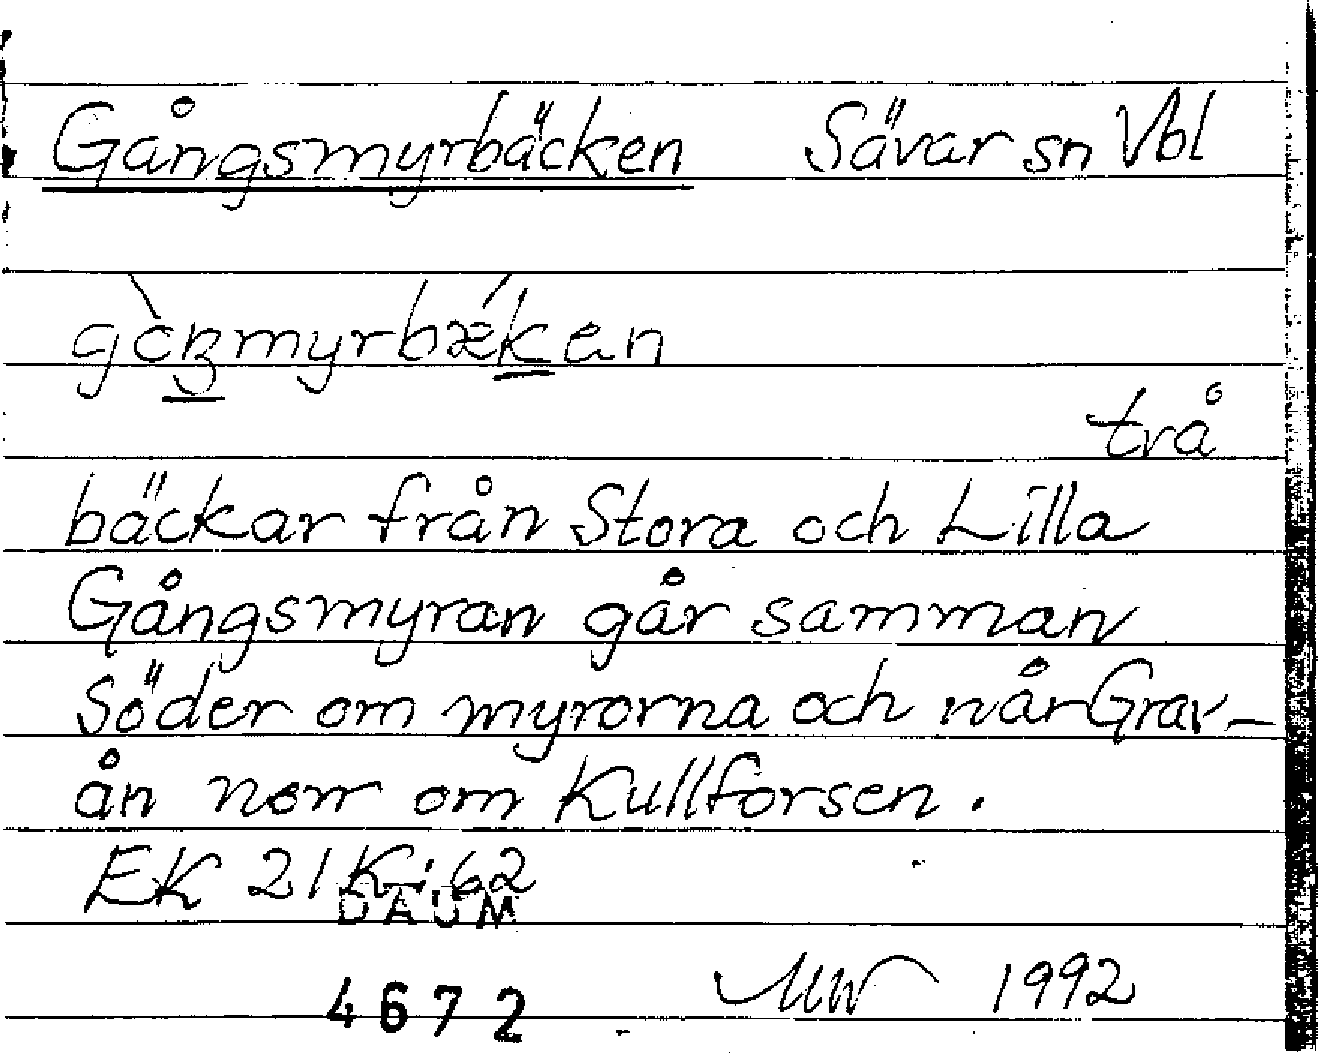 Gångsmyrbäcken Sävar sn Vbl
trå
bäckar från Stora och Lilla
Gångsmyran går samman
söder om myrorna och når Grav-
ån norr om Kullforsen.
EK 21 K: 62
DAUM
4672 1992